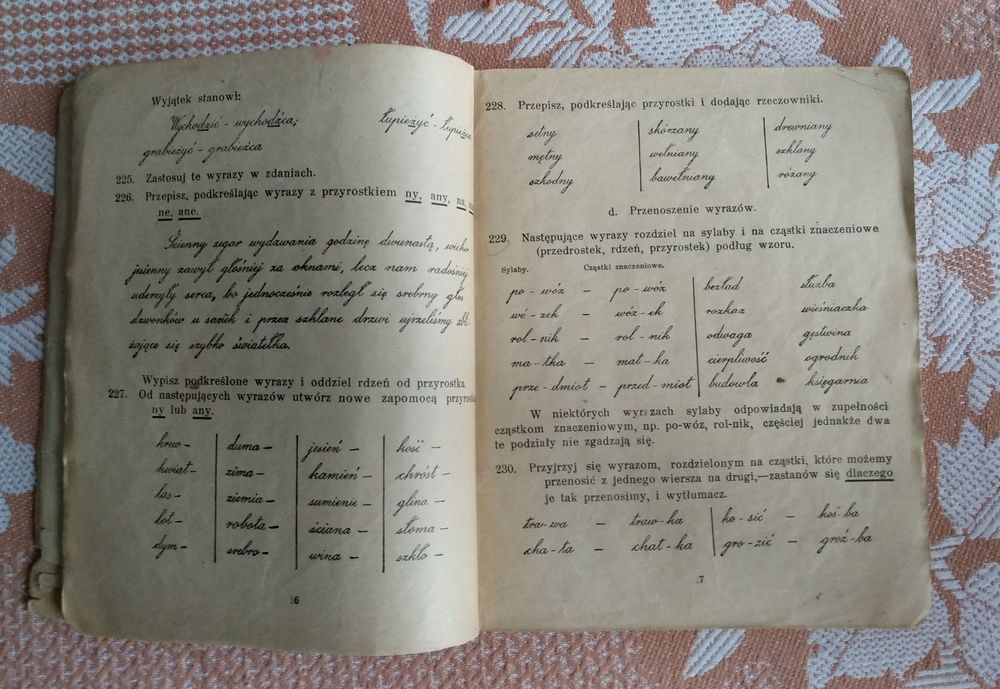 Wyjątek stanowi:
Wychodzić - wychodźca; Łupieżyć - Łupieżca
grabieżyć - grabieżca
225. Zastosuj te wyrazy w zdaniach.
226. Przepisz, podkreślając wyrazy z przyrostkiem ny, any, na,
ne, ane.
Ścienny zegar wydzwania godzinę dwunastą, wicher
jesienny zawył głośniej za oknami, lecz nam radośniej
uderzyły serca, bo jednocześnie rozległ się srebrny głos
dzwonków u sanek i przez szklane drzwi ujrzeliśmy zbli-
żające się szybko światełka.
Wypisz podkreślone wyrazy i oddziel rdzeń od przyrostka.
227. Od następujących wyrazów utwórz nowe zapomocą przyrostka
ny lub any.
krew - duma - jesień - kość -
kwiat - zima - kamień - chróst -
las - ziemia - sumienie - glina -
lot - robota - ściana - słoma -
dym - srebro - wina - szkło -
6
228. Przepisz, podkreślając przyrostki i dodając rzeczowniki.
setny skórzany drewniany
mętny wełniany szklany
szkodny bawełniany różany
d. Przenoszenie wyrazów.
229. Następujące wyrazy rozdziel na sylaby i na cząstki znaczeniowe
(przedrostek, rdzeń, przyrostek) podług wzoru.
Sylaby. Cząstki znaczeniowe.
po - wóz — po - wóz bezład służba
wó - zek — wóz - ek rozkaz wieśniaczka
rol - nik — rol - nik odwaga gęstwina
ma - tka — mat - ka cierpliwość ogrodnik
prze - dmiot — przed - miot budowla księgarnia
W niektórych wyrazach sylaby odpowiadają w zupełności
cząstkom znaczeniowym, np. po-wóz, rol-nik, częściej jednakże dwa
te podziały nie zgadzają się.
230. Przyjrzyj się wyrazom, rozdzielonym na cząstki, które możemy
przenosić z jednego wiersza na drugi,—zastanów się dlaczego
je tak przenosimy, i wytłumacz.
tra - wa — traw - ka ko - sić — koś - ba
cha - ta — chat - ka gro - zić — groź - ba
7